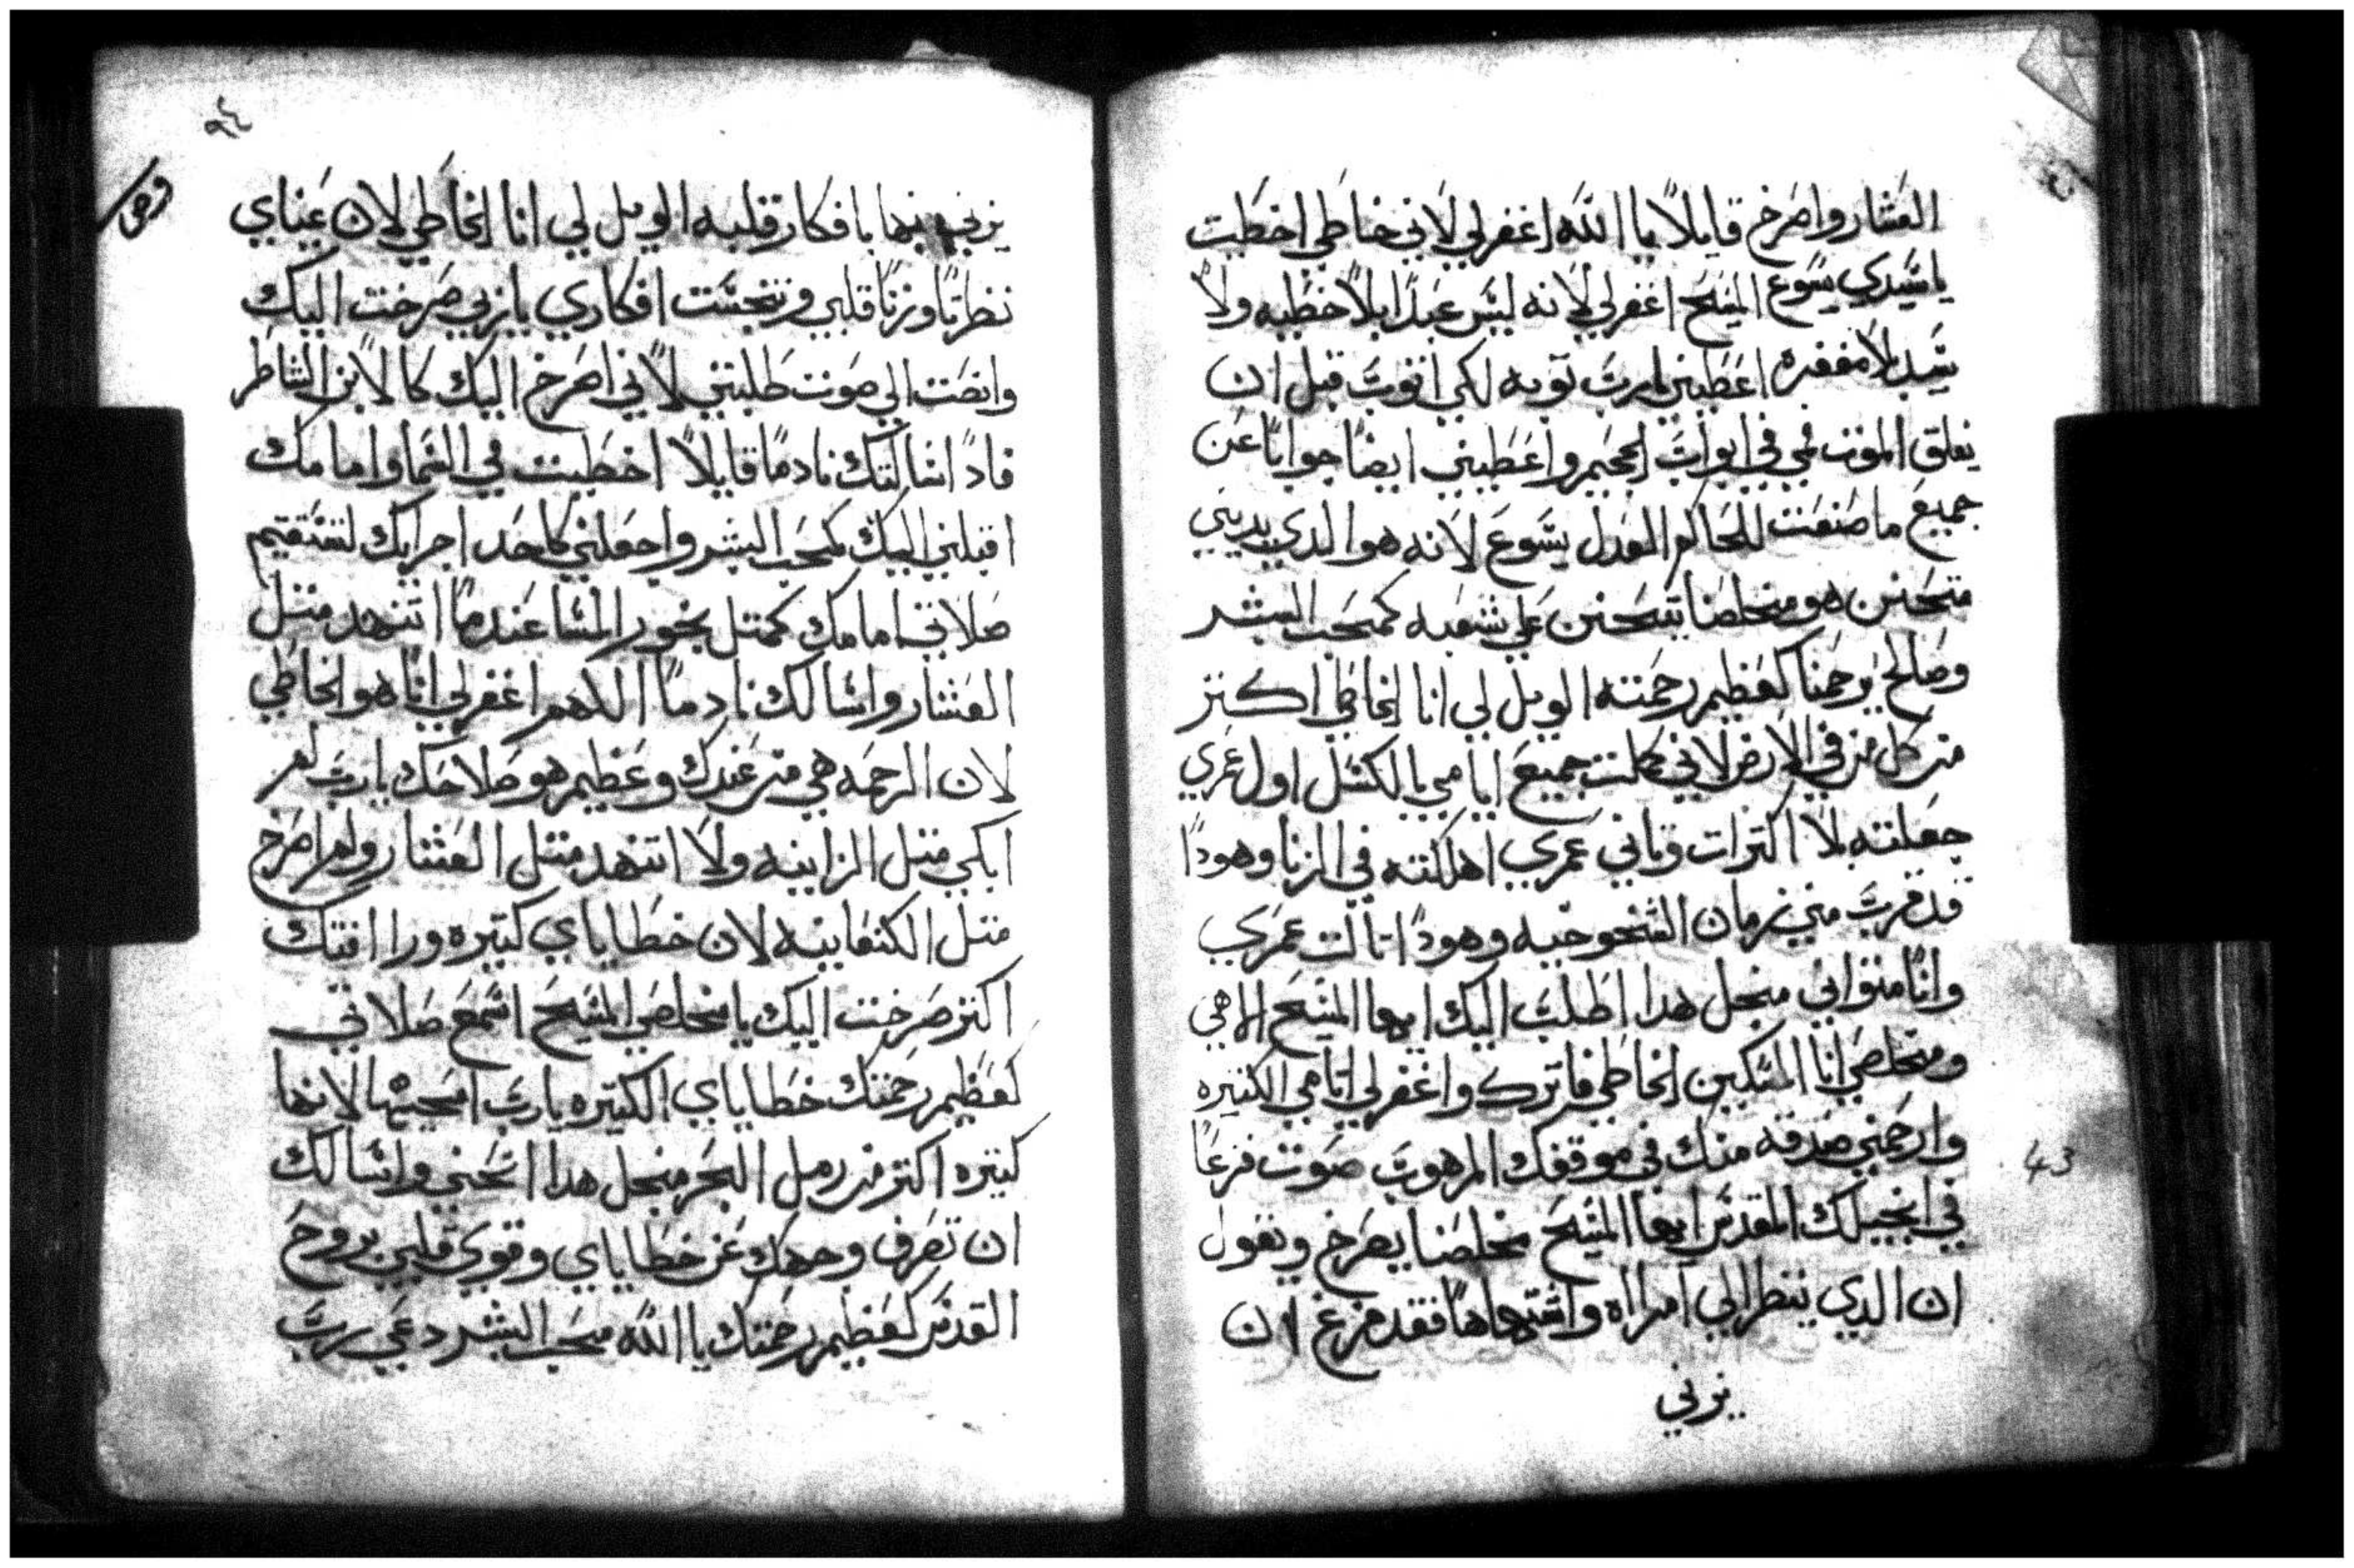 العشار واصرخ قايلاً يا الله اغفر لي لاني خاطي اخطيت
يا سيدي يسوع المسيح اغفر لي لانه ليس عبداً بلا خطيه ولا
سيد بلا مغفره اعطيني يارب توبه لكي اتوب قبل ان
يغلق الموت فمي في ابواب الجحيم واعطيني ايضاً جواباً عن
جميع ما صنعت للحاكم العدل يسوع لانه هو الدي يدينني
متحنن هو مخلصنا يتحنن علي شعبه كمحب البشر
وصالح يرحمنا كعظيم رحمته الويل لي انا الخاطي اكتر
من كل من في الارض لاني كملت جميع ايامي بالكسل اول عمري
جعلته بلا اكترات وتاني عمري اهلكته في الزنا وهودا
قد قربت مني زمان الشخوخيه وهودا تالت عمري
وانا متواني منجل هدا اطلب اليك ايها المسيح الاهي
ومخلصي انا المسكين الخاطي فاترك واغفر لي اتامي الكتيره
وارحمني صدقه منك في موقفك المرهوب صوت فزعاً
في انجيلك المقدس ايها المسيح مخلصنا يصرخ ويقول
ان الدي ينظر الي امراه واشتهاها فقد فرغ ان
يزني
43
٩٤
يزني بها بافكار قلبه الويل لي انا الخاطي لان عيناي
نظرتا وزنا قلبي وتنجست افكاري يا ربي صرخت اليك
وانصت الي صوت طلبتي لاني اصرخ اليك كالابن الشاطر
فاد اسالتك نادماً قايلاً اخطيت في السما وامامك
اقبلني اليك كمحب البشر واجعلني كاحد اجرايك لتستقيم
صلاتي امامك كمتل بخور المسا عندما اتنهد متل
العشار واسالك نادماً اللهم اغفر لي انا هو الخاطي
لان الرحمه هي من عندك وعظيم هو صلاحك يارب لم
ابكي متل الزانيه ولا اتنهد متل العشار ولم اصرخ
متل الكنعانيه لان خطاياي كتيره ورافتك
اكتر صرخت اليك يا مخلصي المسيح اسمع صلاتي
كعظيم رحمتك خطاياي الكتيره يارب امحيها لانها
كتيره اكتر من رمل البحر منجل هدا انحني واسالك
ان تصرف وجهك عن خطاياي وقوي قلبي بروح
القدس كعظيم رحمتك يا الله محب البشر دعي رب